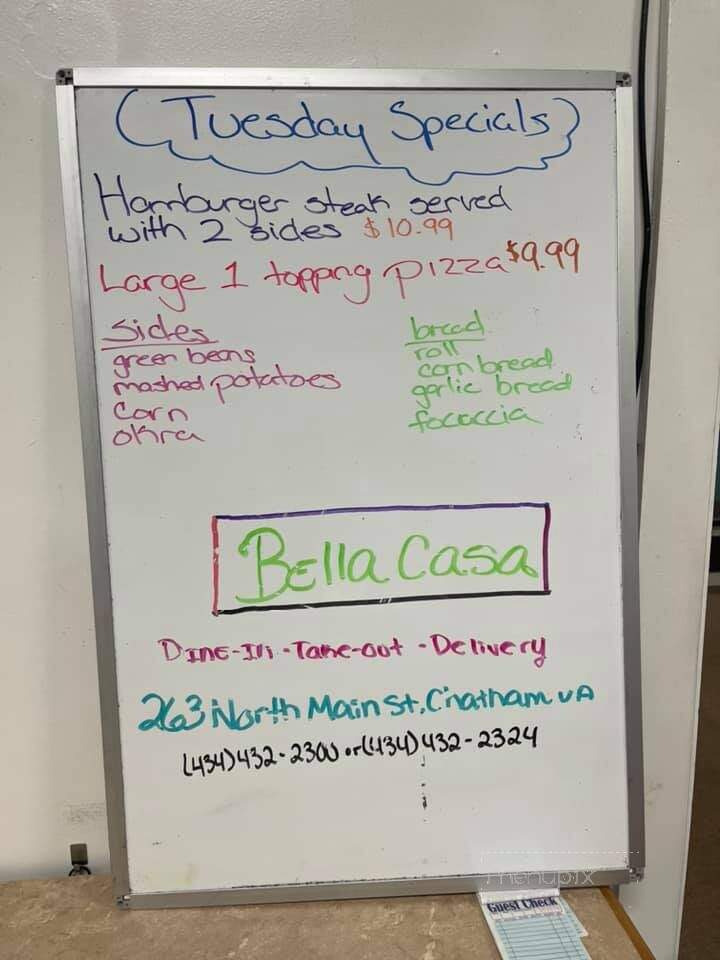 Tuesday Specials
Hamburger steak served
with 2 sides $10.99
Large 1 topping pizza $9.99
Sides
green beans
mashed potatoes
corn
okra
bread
roll
corn bread
garlic bread
focaccia
Bella Casa
Dine-In - Take-out - Delivery
263 North Main St, Chatham VA
(434)432-2300 or (434)432-2324
menupix
Guest Check